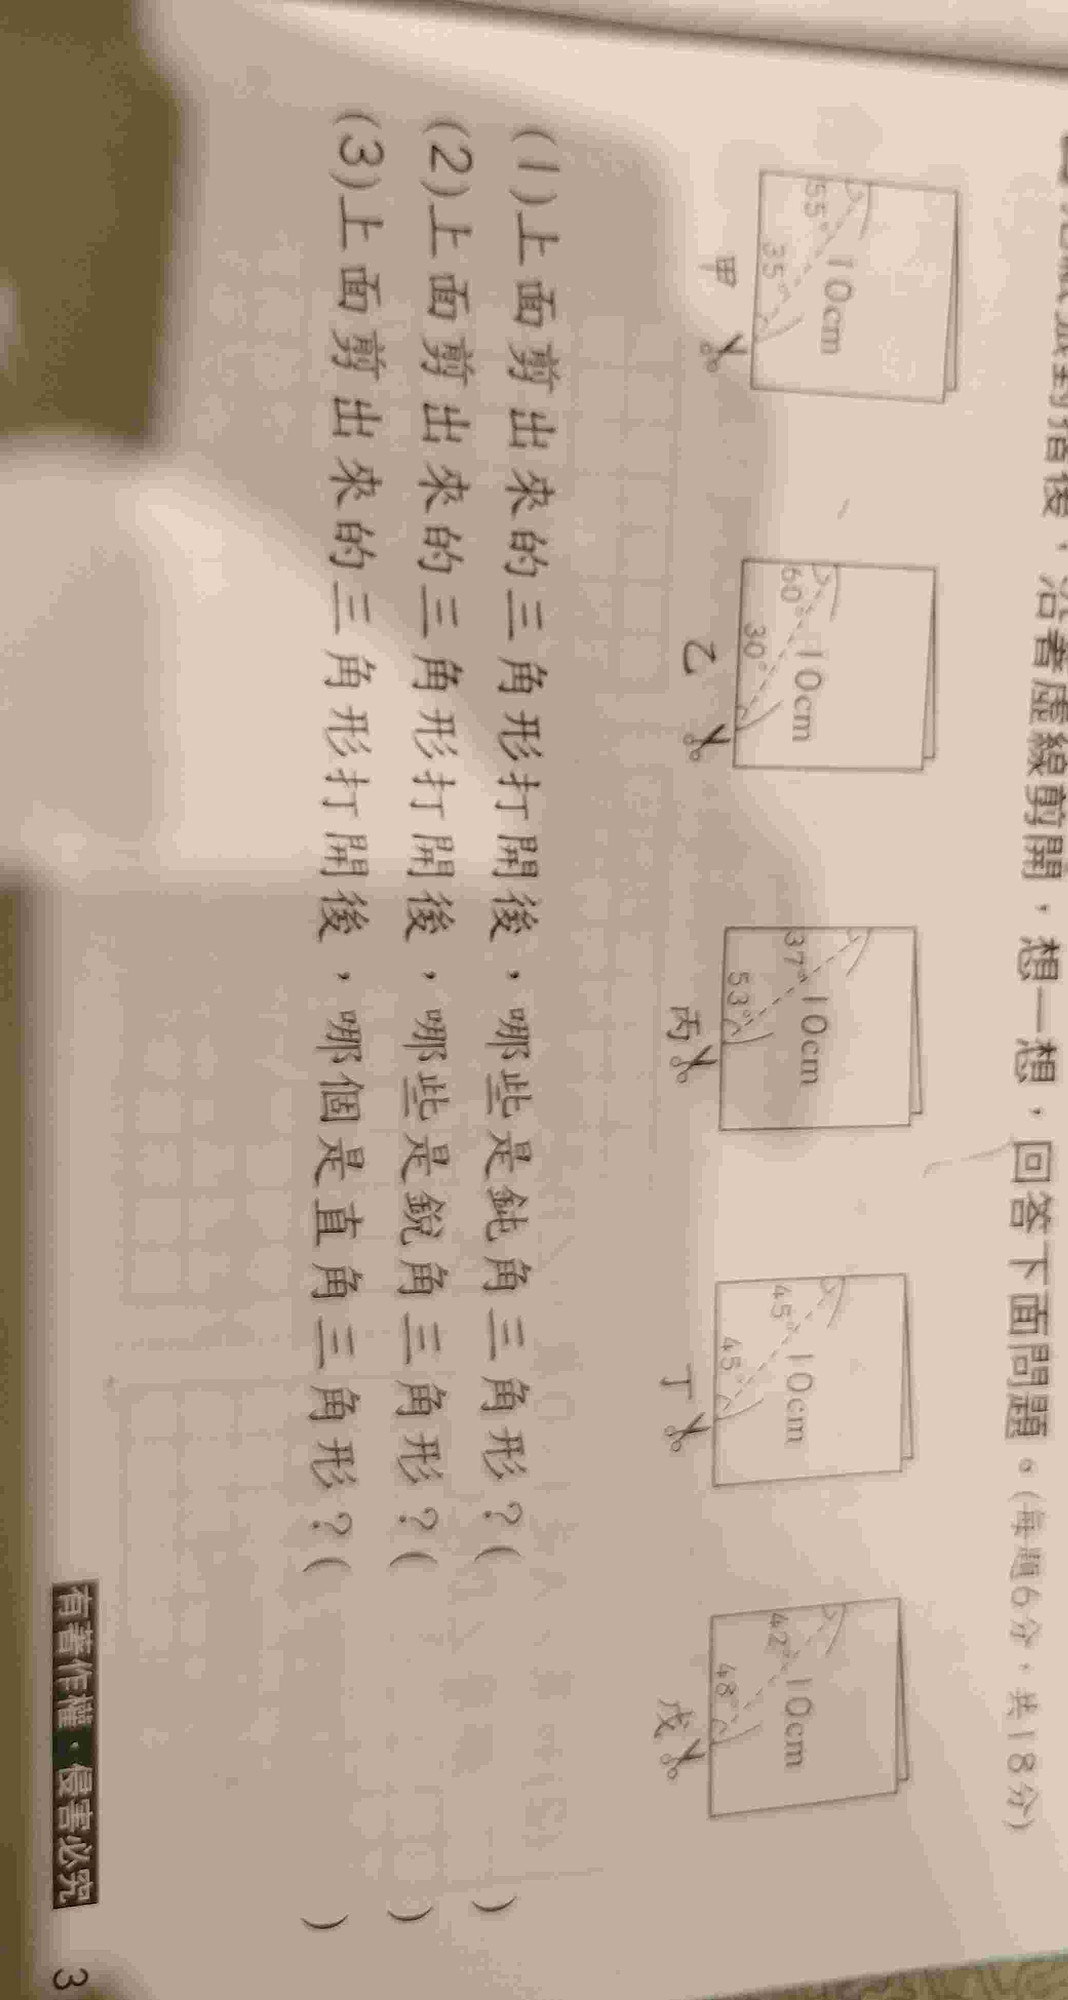 沿著虛線剪開，想一想，回答下面問題。(每題6分，共18分)
55° 10cm 35° 甲
60° 10cm 30° 乙
37° 10cm 53° 丙
45° 10cm 45° 丁
42° 10cm 48° 戊
(1)上面剪出來的三角形打開後，哪些是鈍角三角形？( )
(2)上面剪出來的三角形打開後，哪些是銳角三角形？( )
(3)上面剪出來的三角形打開後，哪個是直角三角形？( )
有著作權·侵害必究 3